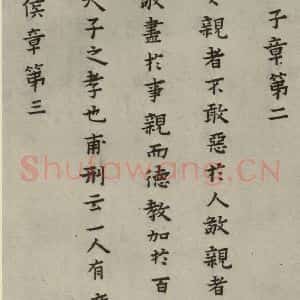 子章第二
親者不敢惡於人敬親者
敬盡於事親而德教加於百
子之孝也甫刑云一人有
侯章第三
Shufawang.CN